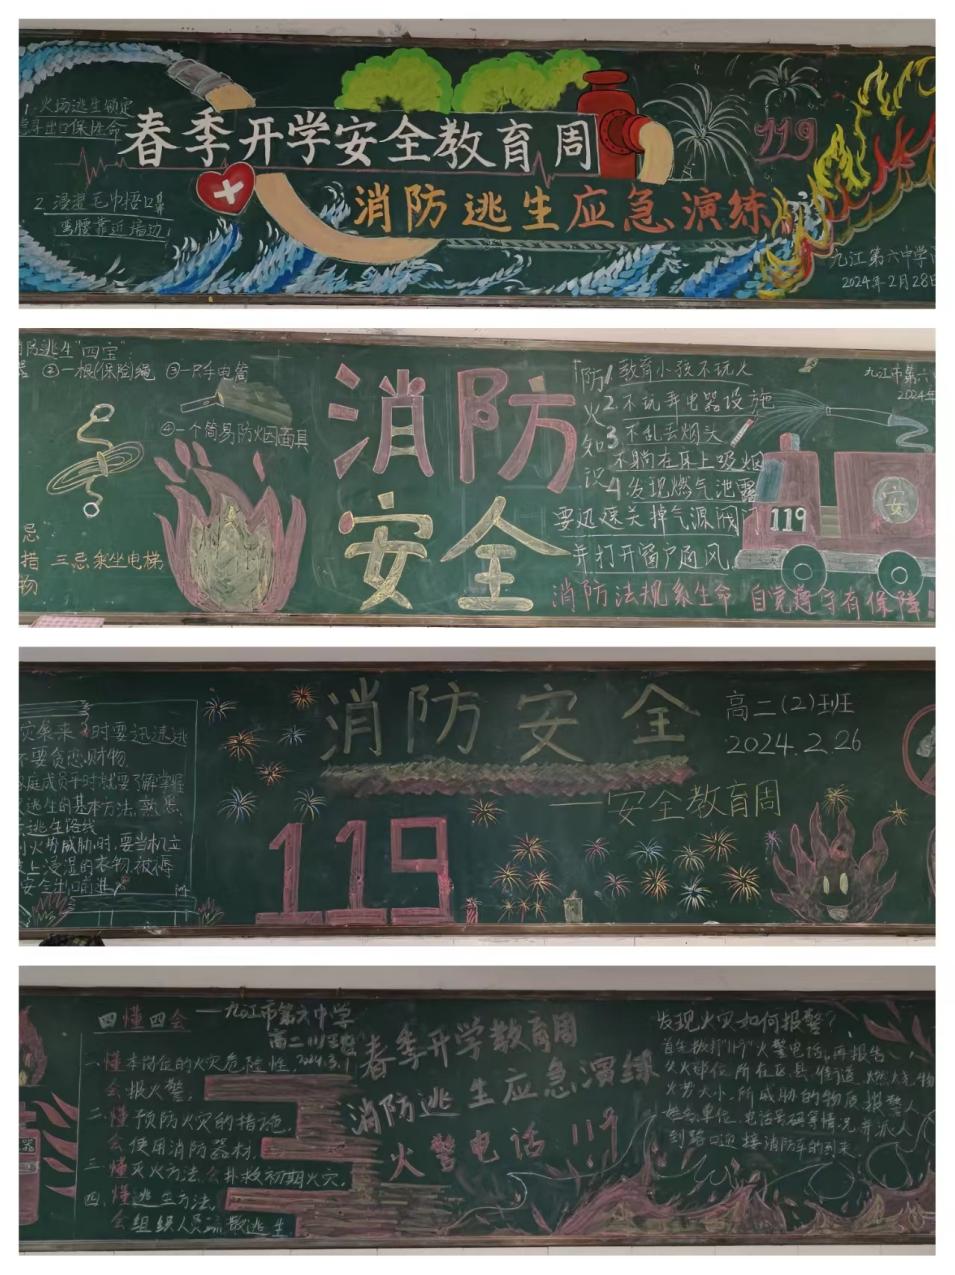 1.火场逃生锁定
寻出口保性命
春季开学安全教育周
119
2.浸湿毛巾捂口鼻
弯腰靠近墙边
消防逃生应急演练
九江第六中学
2024年2月28日
防逃生"四宝"
②一根保险绳 ③一只手电筒
④一个简易防烟面具
忌
措 三忌乘坐电梯
物
消防
安全
防火知识
1.教育小孩不玩火
2.不玩弄电器设施
3.不乱丢烟头
不躺在床上吸烟
4.发现燃气泄露
要迅速关掉气源阀门
并打开窗户通风
消防法规系生命 自觉遵守有保障!
九江市第六
2024年
119
安
灾袭来时要迅速逃
不要贪恋财物
家庭成员平时就要了解掌握
逃生的基本方法,熟悉
逃生路线
到火势威胁时,要当机立
上浸湿的衣物,被褥
安全出口
消防安全
高二(2)班
2024.2.26
——安全教育周
119
四懂四会 ——九江市第六中学
高二
2024.3.1
一.懂本岗位的火灾危险性,
会报火警.
二.懂预防火灾的措施.
会使用消防器材.
三.懂灭火方法,会扑救初期火灾.
四.懂逃生方法,
会组织人员疏散逃生
春季开学教育周
消防逃生应急演练
火警电话 119
发现火灾如何报警?
首先拨打"119"火警电话,再报告
火灾单位,所在区县,街道,燃烧物
火势大小,所威胁的物质,报警人
姓名,单位,电话号码等情况,并派人
到路口迎接消防车的到来.